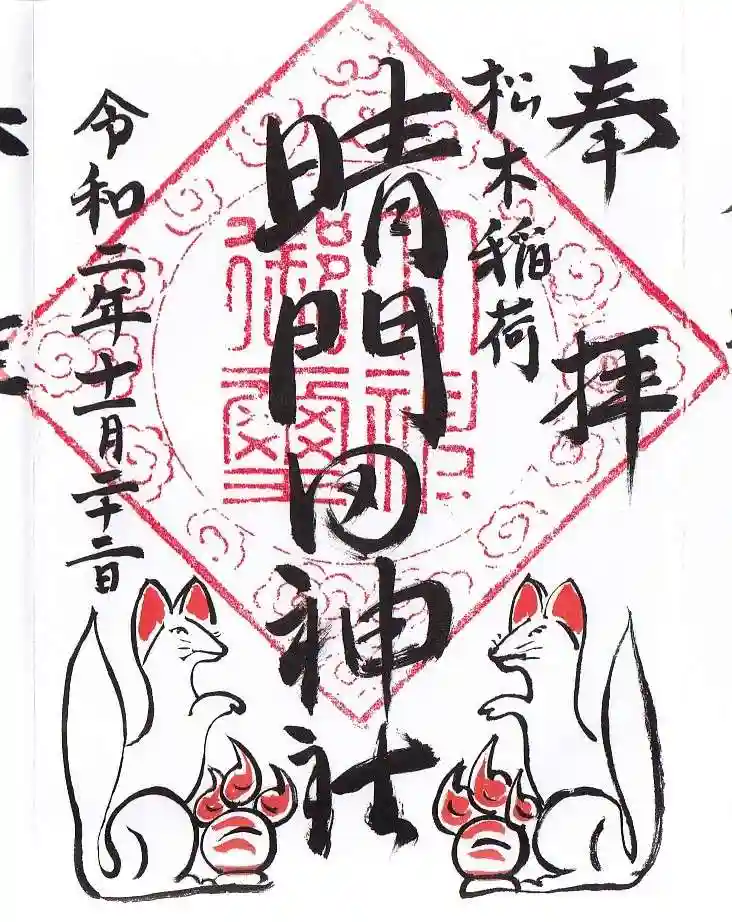 奉拝
松木稲荷
晴門田神社
令和二年十一月二十二日